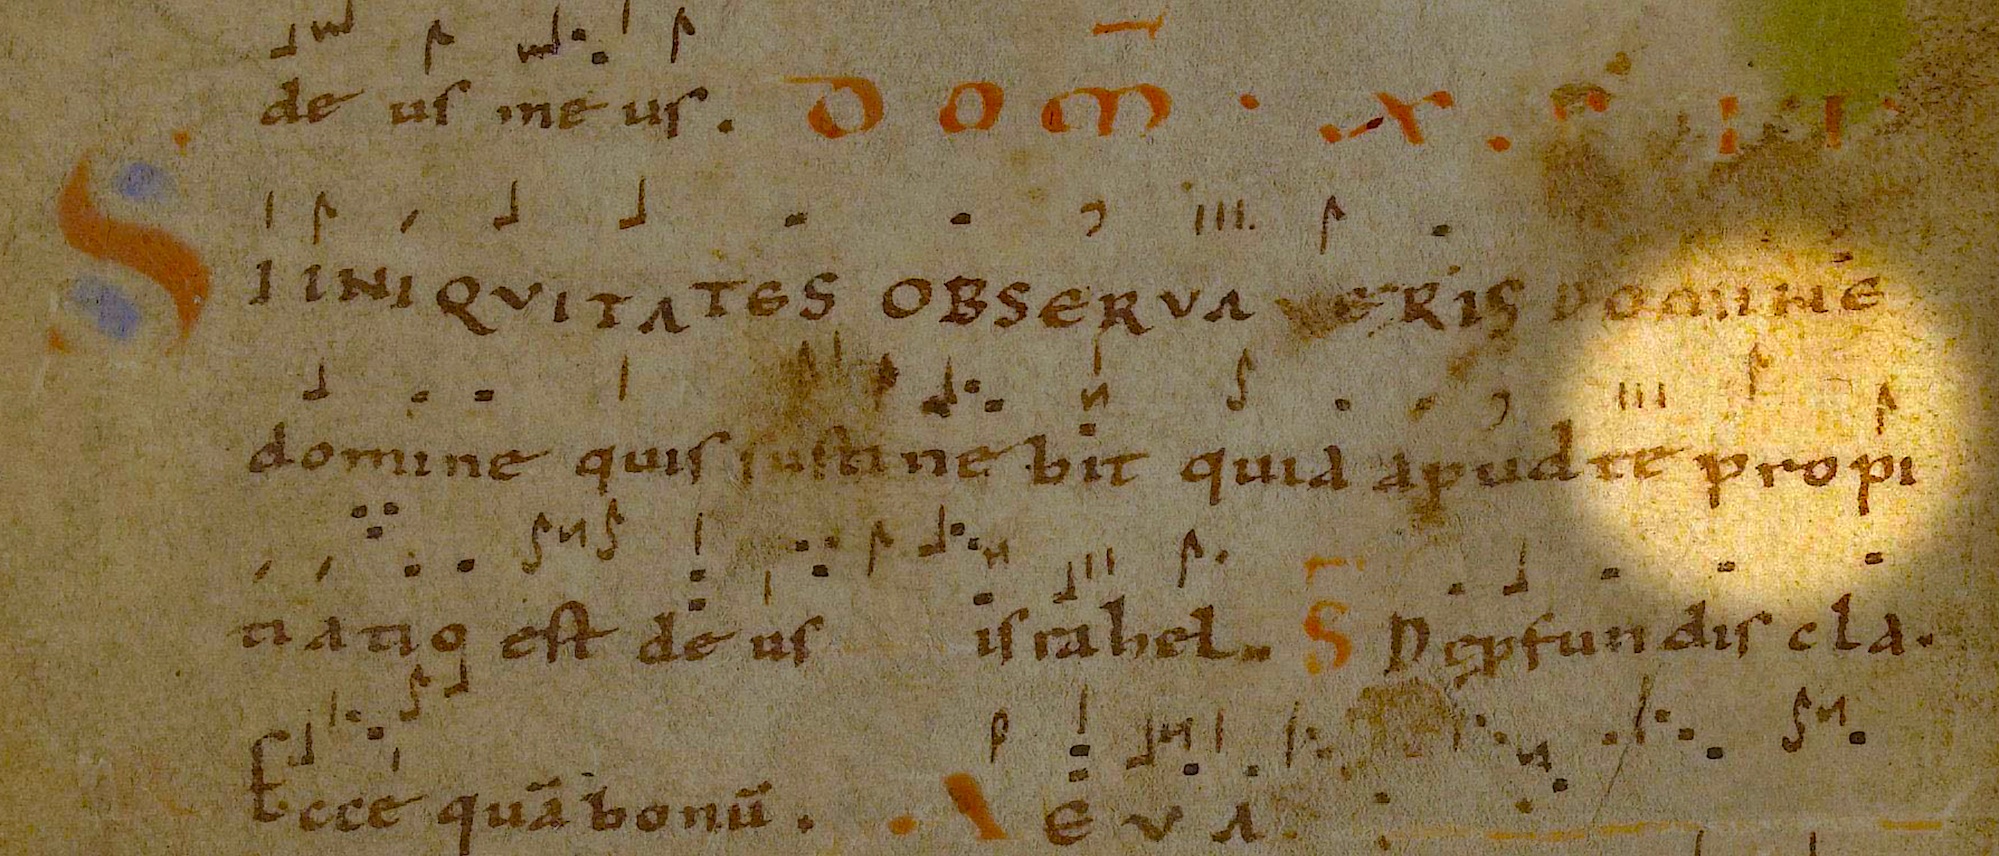 de us me us. Dom̄ · X · V I I I ·
SI INIQVITATES OBSERVA VERIS DOMINE
domine quis sustine bit quia apud te propi
tiatio est de us israhel. S̄ De ꝓfun dis cla.
Ecce quā bonū. AEVA.